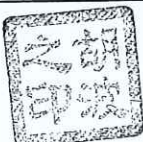 胡波
之印